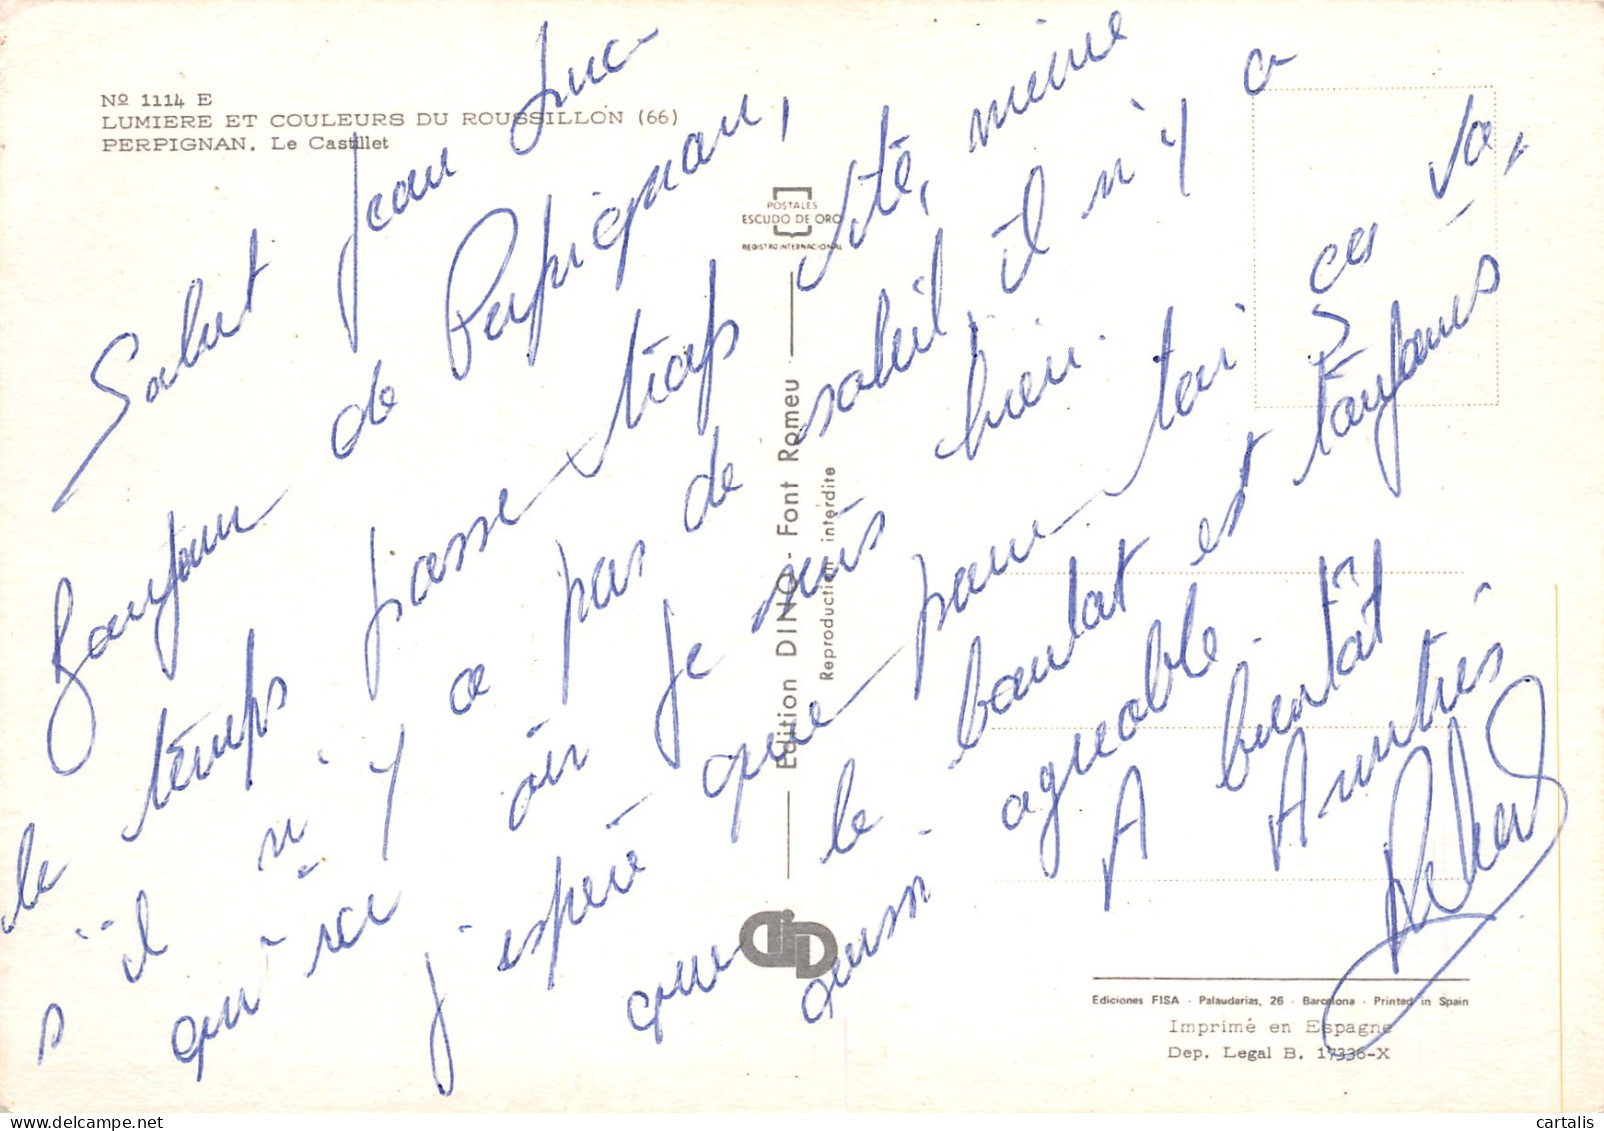 Nº 1114 E
LUMIERE ET COULEURS DU ROUSSILLON (66)
PERPIGNAN. Le Castillet
POSTALES
ESCUDO DE ORO
REGISTRO INTERNACIONAL
Edition DINO - Font Romeu
Reproduction interdite
Salut Jean Luc
Bonjour de Perpignan,
le temps passe trop vite, même
s'il n'y a pas de soleil il n'y a
qu'ici où je suis bien.
j'espère que pour toi ça va,
que le boulot est toujours
aussi agréable.
A bientôt
Amitiés
Ediciones FISA - Palaudarias, 26 - Barcelona - Printed in Spain
Imprimé en Espagne
Dep. Legal B. 17336-X
cartalis